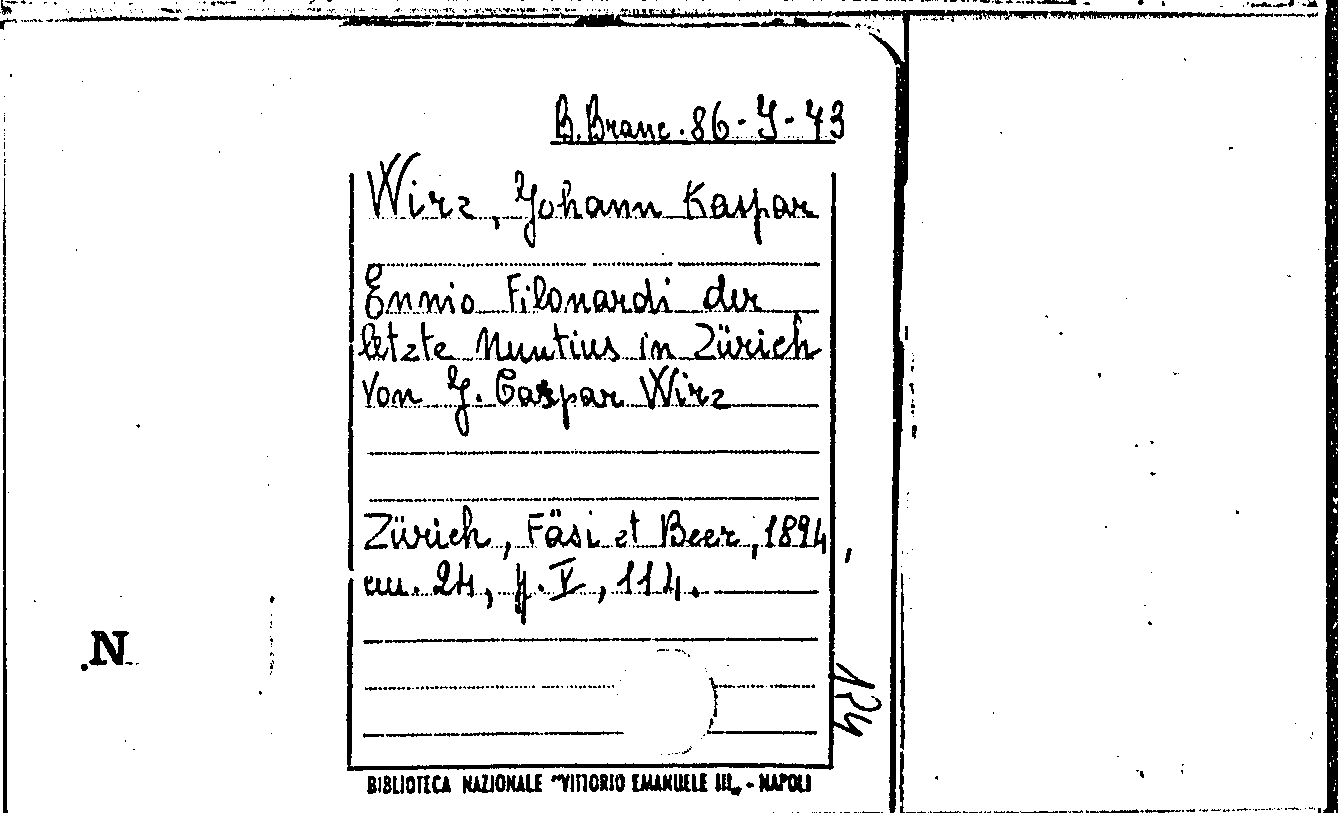 B. Branc. 86-J-43
Wirz, Johann Kaspar
Ennio Filonardi der
letzte Nuntius in Zürich
Von J. Caspar Wirz
Zürich, Fäsi et Beer, 1894,
cm. 24, p. V, 114.
.N
BIBLIOTECA NAZIONALE "VITTORIO EMANUELE III„ - NAPOLI